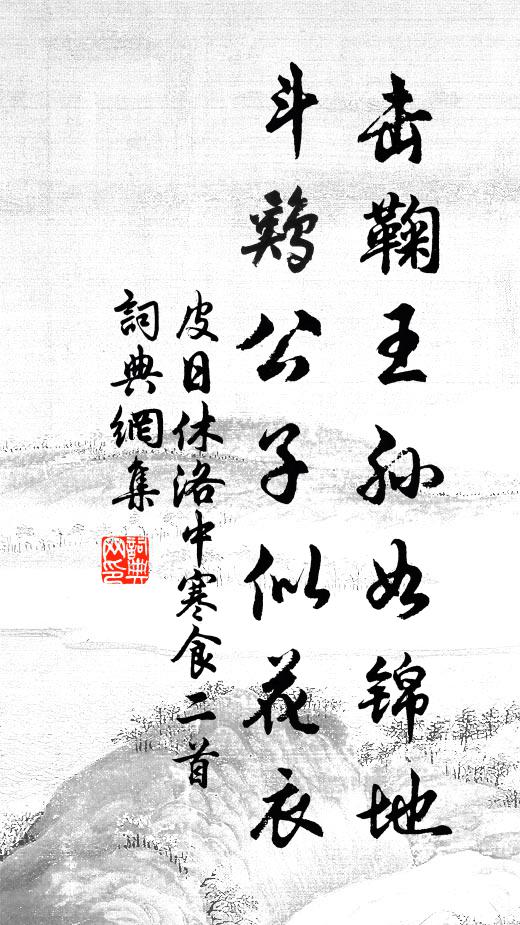 击鞠王孙如锦地
斗鷄公子似花衣
皮日休洛中寒食二首
詞典網集
詞典網印